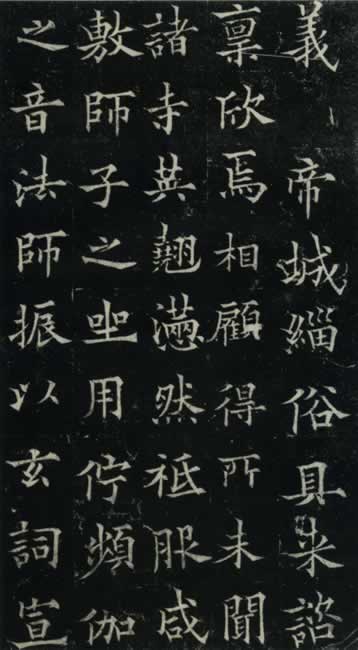 義 帝城緇俗具来諮
禀欣焉相顧得所未聞
諸寺英翹懣然祗服咸
敷師子之坐用佇頻伽
之音法師振以玄詞宣